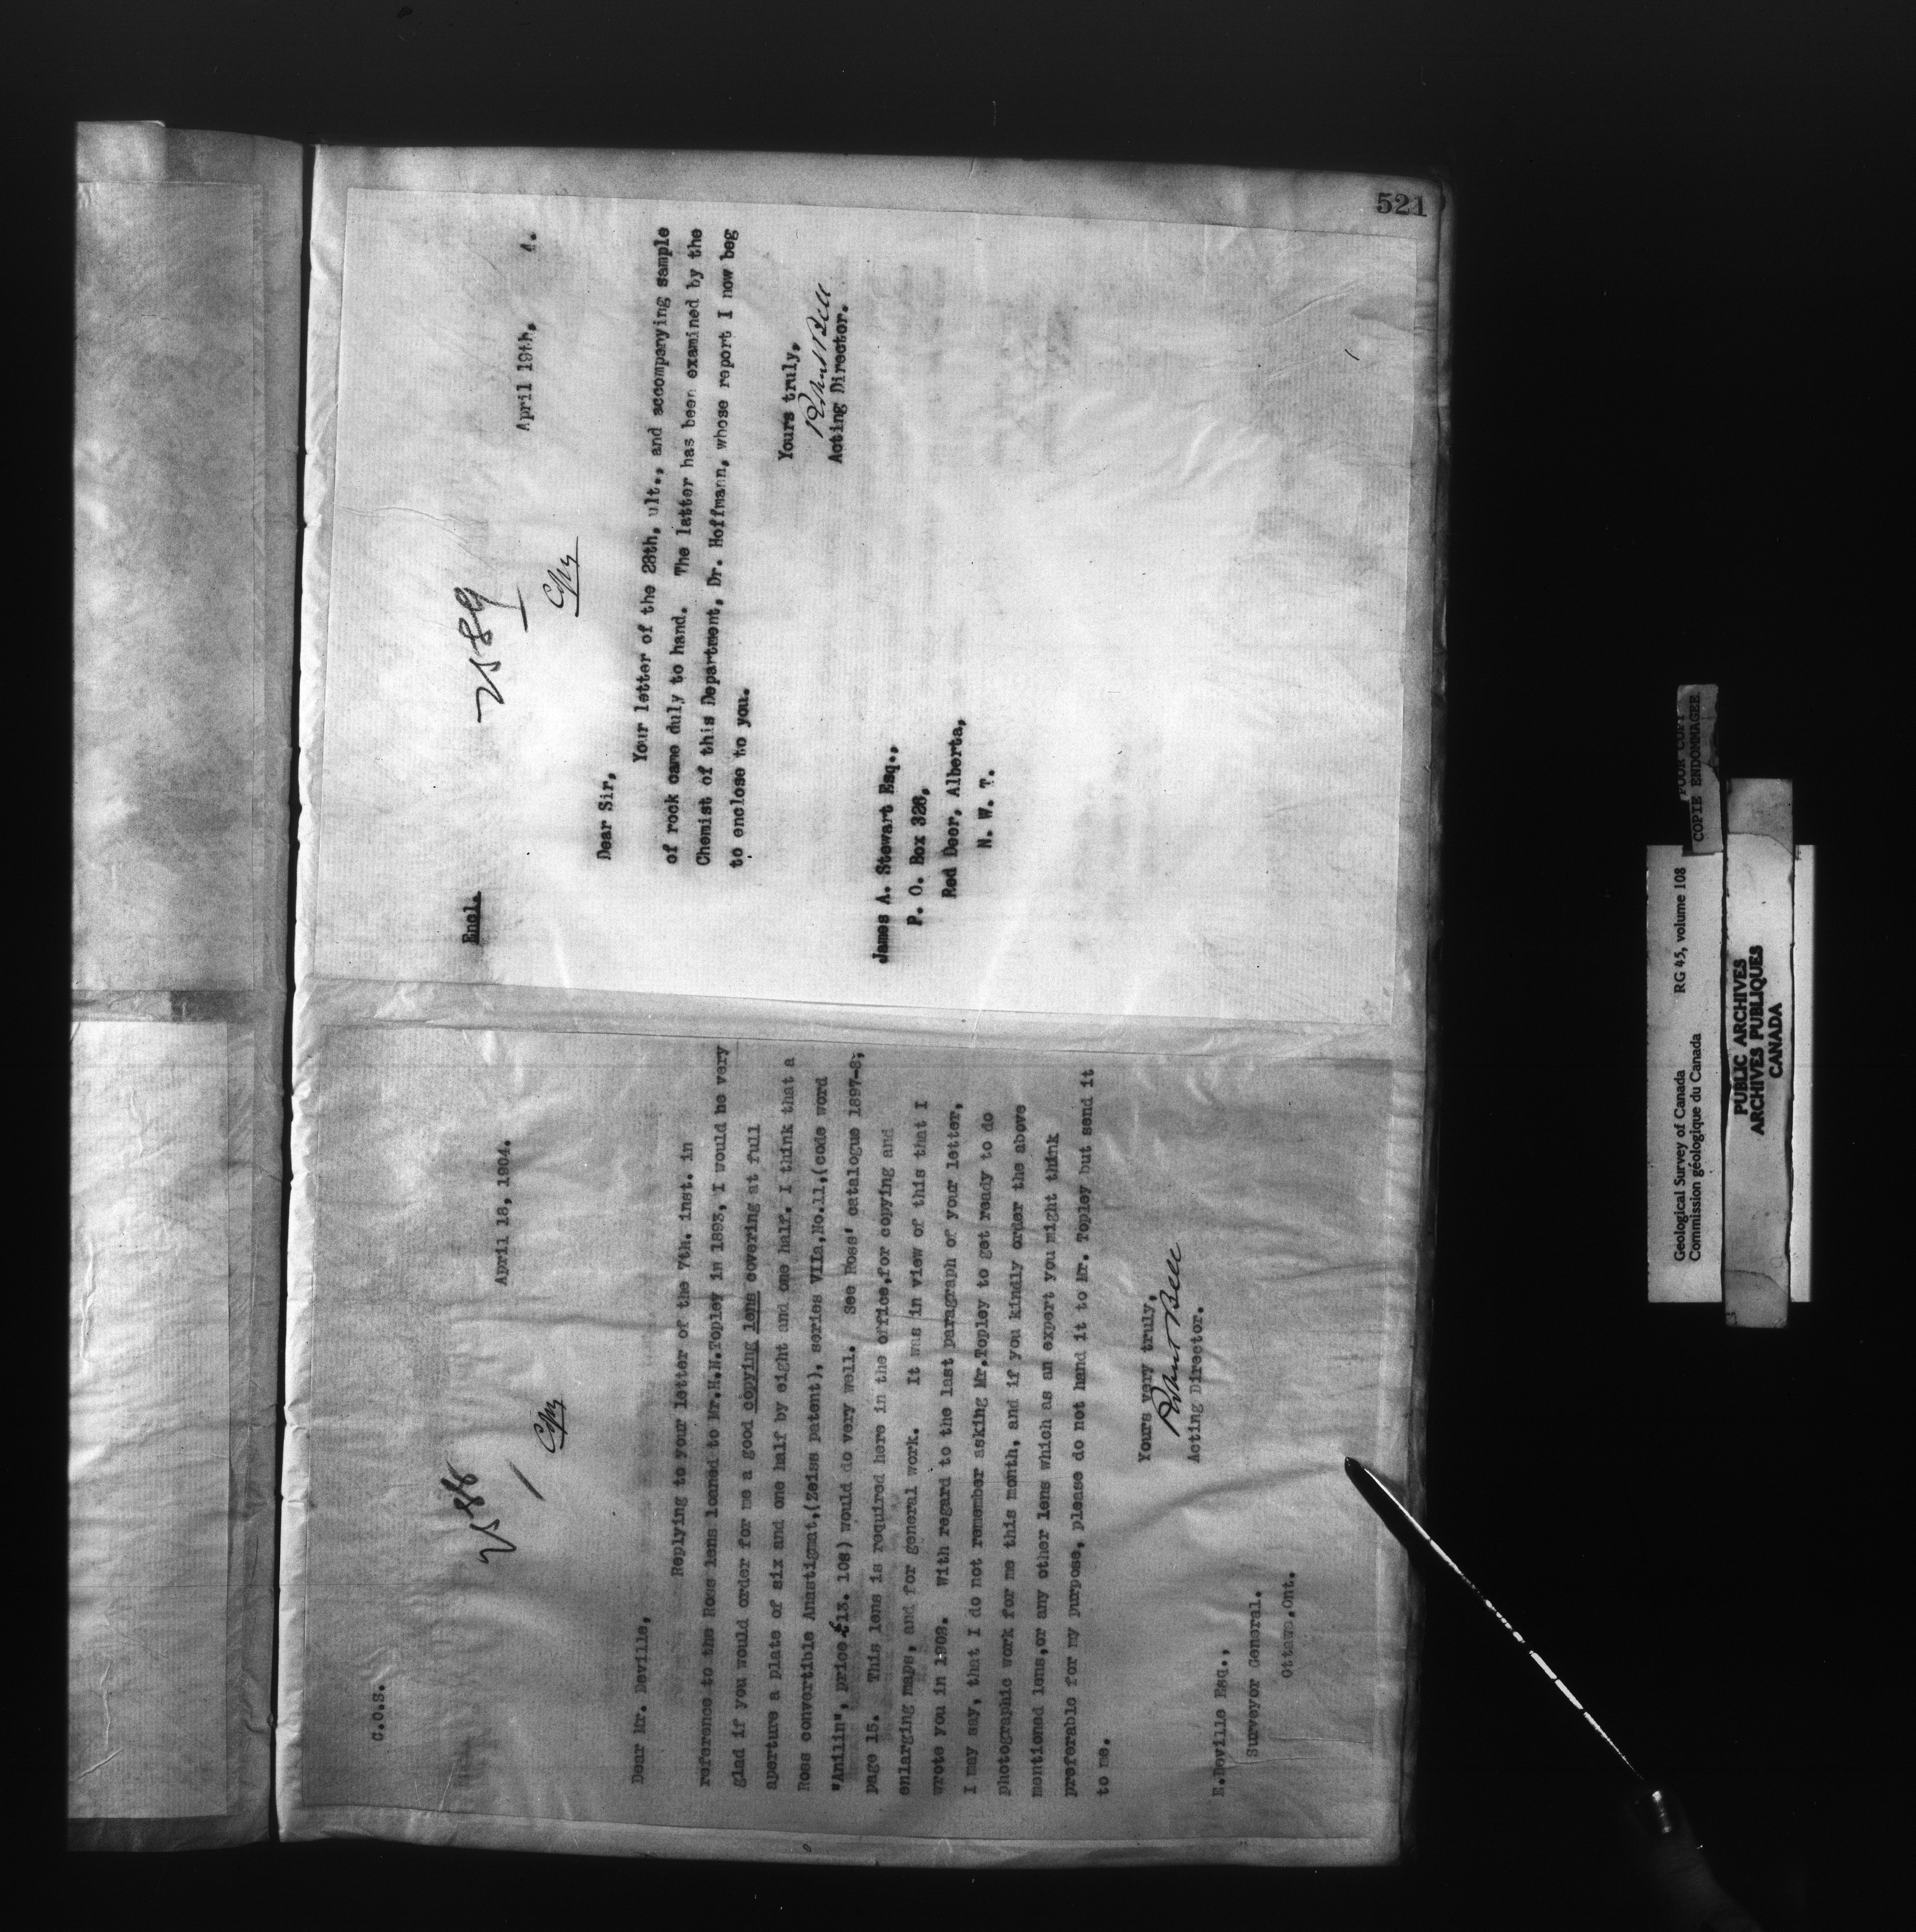 C.O.S.
2588
Cpy
April 18, 1904.
Dear Mr. Deville,
Replying to your letter of the 7th. inst. in
reference to the Ross lens loaned to Mr.H.N.Topley in 1893, I would be very
glad if you would order for me a good copying lens covering at full
aperture a plate of six and one half by eight and one half. I think that a
Ross convertible Anastigmat,(Zeiss patent), series VIIa,No.11,(code word
"Anilin", price £13. 10s) would do very well. See Ross' catalogue 1897-8,
page 15. This lens is required here in the office,for copying and
enlarging maps, and for general work. It was in view of this that I
wrote you in 1902. With regard to the last paragraph of your letter,
I may say, that I do not remember asking Mr.Topley to get ready to do
photographic work for me this month, and if you kindly order the above
mentioned lens,or any other lens which as an expert you might think
preferable for my purpose, please do not hand it to Mr. Topley but send it
to me.
Yours very truly,
Robert Bell
Acting Director.
E.Deville Esq.,
Surveyor General.
Ottawa,Ont.
521
Encl.
2589
Cpy
April 19th, 4.
Dear Sir,
Your letter of the 28th, ult., and accompanying sample
of rock came duly to hand. The latter has been examined by the
Chemist of this Department, Dr. Hoffmann, whose report I now beg
to enclose to you.
Yours truly,
Robert Bell
Acting Director.
James A. Stewart Esq.,
P. O. Box 326,
Red Deer, Alberta,
N. W. T.
Geological Survey of Canada RG 45, volume 108
Commission géologique du Canada
POOR COPY
COPIE ENDOMMAGEE
PUBLIC ARCHIVES
ARCHIVES PUBLIQUES
CANADA